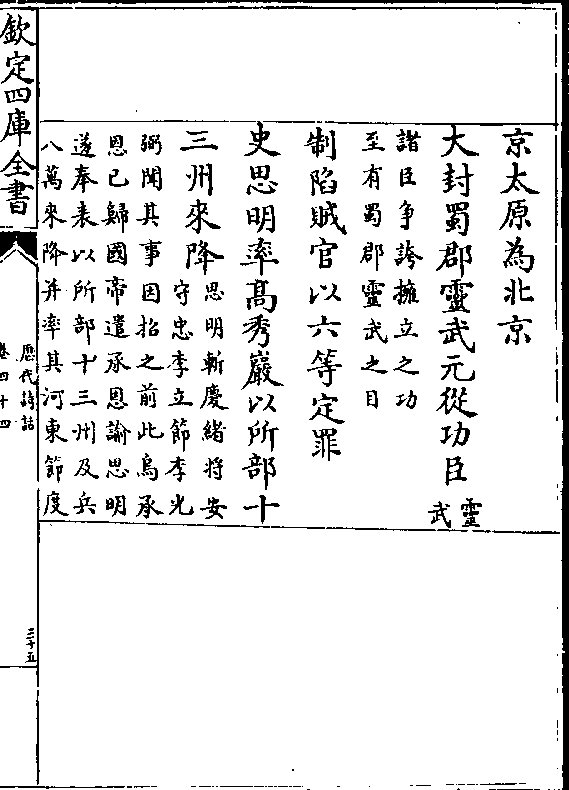 京太原為北京
大封蜀郡靈武元從功臣靈武
諸臣争誇擁立之功
至有蜀郡靈武之目
制陷賊官以六等定罪
史思明率髙秀巖以所部十
三州來降思明斬慶緒將安
守忠李立節李光
弼聞其事因招之前此烏承
恩已歸國帝遣承恩諭思明
遂奉表以所部十三州及兵
八萬來降并率其河東節度
欽定四庫全書
歴代詩話
卷四十四
三十五